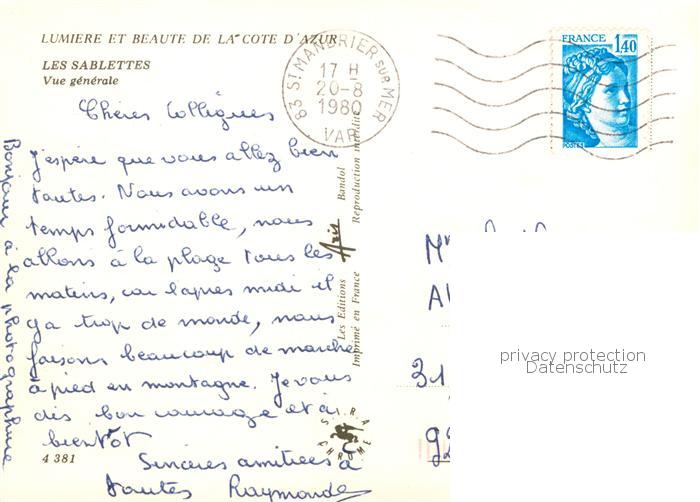 LUMIERE ET BEAUTE DE LA COTE D'AZUR
LES SABLETTES
Vue générale
Chères Collègues
J'espère que vous allez bien
toutes. Nous avons un
temps formidable, nous
allons à la plage tous les
matins, car l'apres midi il
ya trop de monde, nous
faisons beaucoup de marche
à pied en montagne. Je vous
dis bon courage et à
bientôt
Sincères amitiées à
toutes Raymonde
Bonjour à la photographie
4 381
83 St MANDRIER sur MER
17 H
20-8
1980
VAR
FRANCE
1,40
POSTES
Les Editions Aris Bandol
Imprimé en France Reproduction interdite
S.I.R.A.
CHROME
31
92
privacy protection
Datenschutz